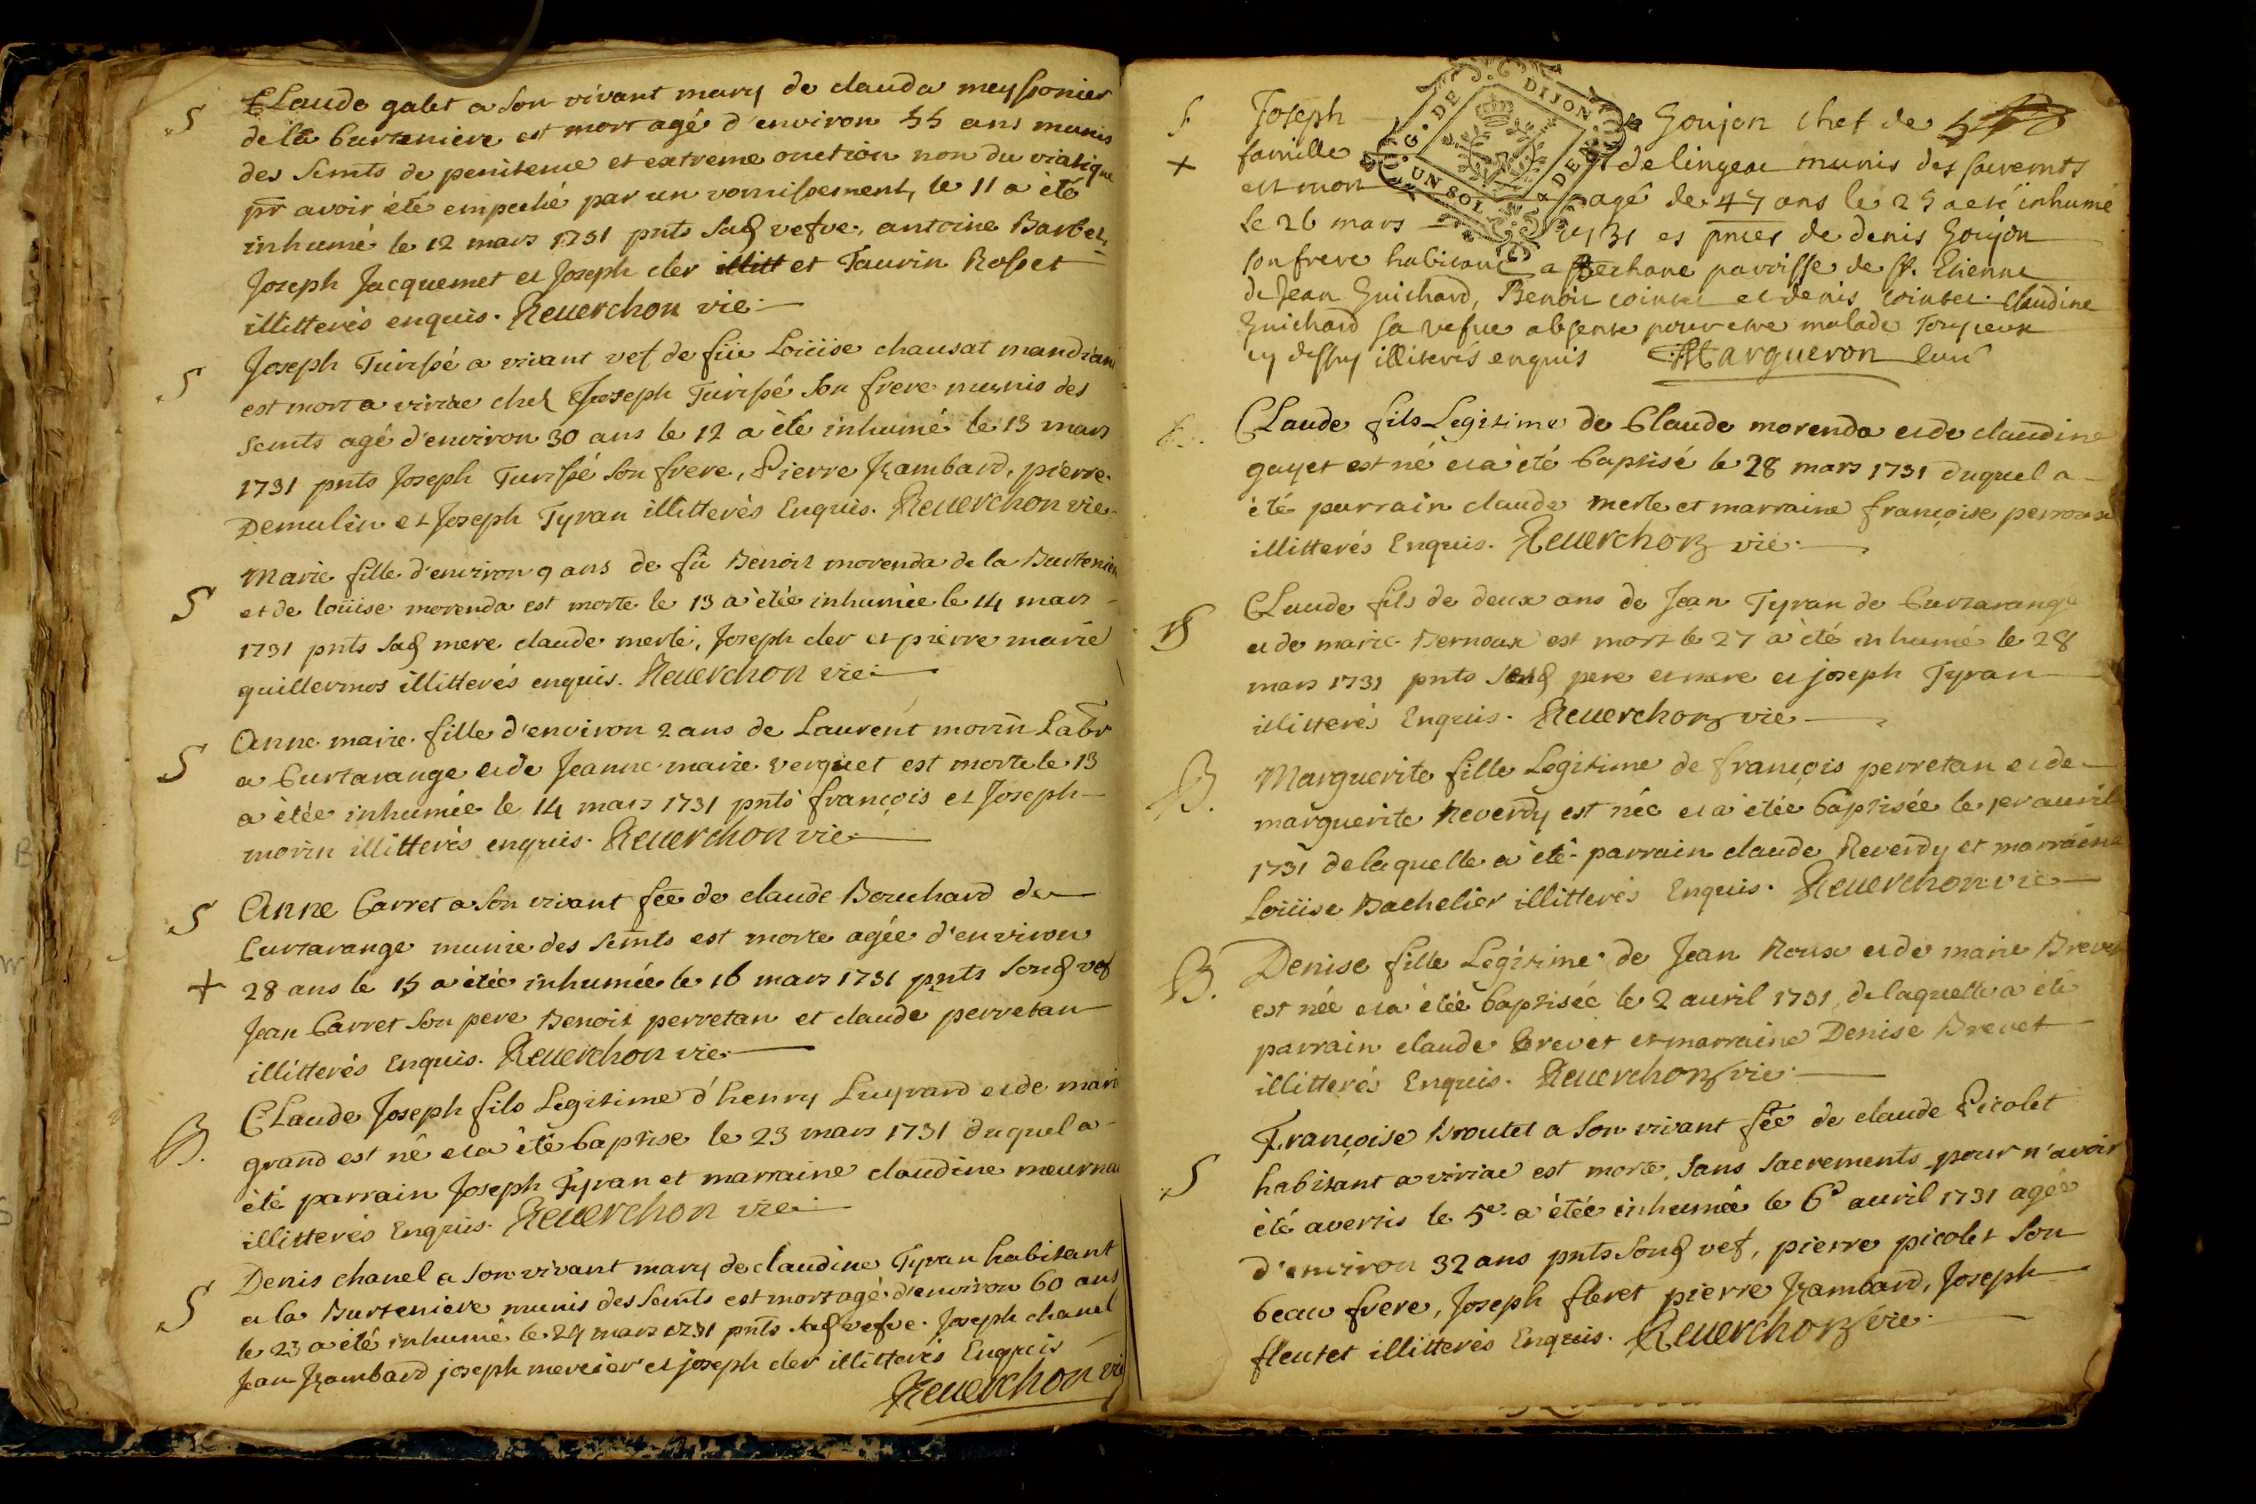 S
CLaude galet a son vivant mary de clauda meyssonier
de la Curteniere est mort agé d'environ 55 ans munis
des Semts de penitence et extreme onction non du viatique
pr avoir été empeché par un vomissement, le 11 a été
inhumé le 12 mars 1731 pnts sad vefve, antoine Barbet,
Joseph Jacquemet et Joseph cler et Taurin Rosset
illitterés enquis. Reuerchon vic.
S
Joseph Turissé a vivant vef de füe Loüise chausat
est mort a viriac chez Joseph Turissé son frere munis des
semts agé d'environ 30 ans le 12 a été inhumé le 13 mars
1731 pnts Joseph Turissé son frere, Pierre Rambard, pierre
Demulin et Joseph Tyran illitterés Enquis. Reuerchon vic.
S
Marie fille d'environ 9 ans de fü Benoit morenda de la Burtenier
et de loüise morenda est morte le 13 a étée inhumée le 14 mars
1731 pnts sad mere claude merle, Joseph cler et pierre marie
guillermos illitterés enquis. Reuerchon vic.
S
Anne marie fille d'environ 2 ans de Laurent morin Labr
a Curtarange et de Jeanne marie verguet est morte le 13
a étée inhumée le 14 mars 1731 pnts françois et Joseph
morin illitterés enquis. Reuerchon vic.
S
Anne Carret a son vivant fee de claude Bouchard de
Curtarange munie des semts est morte agée d'environ
+
28 ans le 15 a étée inhumée le 16 mars 1731 pnts sond vef
Jean Carret son pere Benoit perretan et claude perretan
illitterés Enquis. Reuerchon vic.
B.
CLaude Joseph fils Legitime d'henry Luyrard et de mari
grand est né et a été baptise le 23 mars 1731 duquel a
été parrain Joseph Tyran et marraine claudine
illitterés Enquis. Reuerchon vic.
S
Denis chanel a son vivant mary de claudine Tyran habitant
a la Burteniere munis des semts est mort agé d'environ 60 ans
le 23 a été inhumé le 24 mars 1731 pnts sad vefve. Joseph chanel
Jean Rambard joseph mercier et joseph cler illitterés Enquis
Reuerchon vic
S
Joseph Goujon chef de
G. DE DIJON
UN SOL
DEN
+
famille delingeau munis des sacremts
est mort agé de 47 ans le 25 a eté inhumé
le 26 mars 1731 es pnces de denis Goujon
son frere habitant a parroisse de St. Etienne
de Jean Guichard, Benoit cointet et denis cointet claudine
Guichard sa vefve absente pour etre malade Tous ceux
cy dessus illiterés enquis Margueron curé
B.
CLaude fils Legitime de Claude morenda et de claudine
gayet est né et a été baptisé le 28 mars 1731 duquel a
été parrain claude merle et marraine françoise
illitterés Enquis. Reuerchon vic.
S
CLaude fils de deux ans de Jean Tyran de Curtarange
et de marie Bernoux est mort le 27 a été inhumé le 28
mars 1731 pnts sesd pere et mere et joseph Tyran
illitterés Enquis. Reuerchon vic
B.
Marguerite fille Legitime de françois perretan et de
marguerite Reverdy est née et a étée baptisée le 1er avril
1731 de laquelle a été parrain claude Reverdy et marraine
Loüise Bachelier illitterés Enquis. Reuerchon vic
B.
Denise fille Legitime de Jean Roux et de marie Brevet
est née et a étée baptisée le 2 avril 1731 de laquelle a été
parrain claude Brevet et marraine Denise Brevet
illitterés Enquis. Reuerchon vic
Françoise Broutet a son vivant fée de claude Picolet
S
habitant a viriac est morte sans sacrements pour n'avoir
été avertis le 5e a étée inhumée le 6e avril 1731 agée
d'environ 32 ans pnts sond vef, pierre picolet son
beau frere, Joseph fleret pierre Rambard, Joseph
fleutet illitterés Enquis. Reuerchon vic